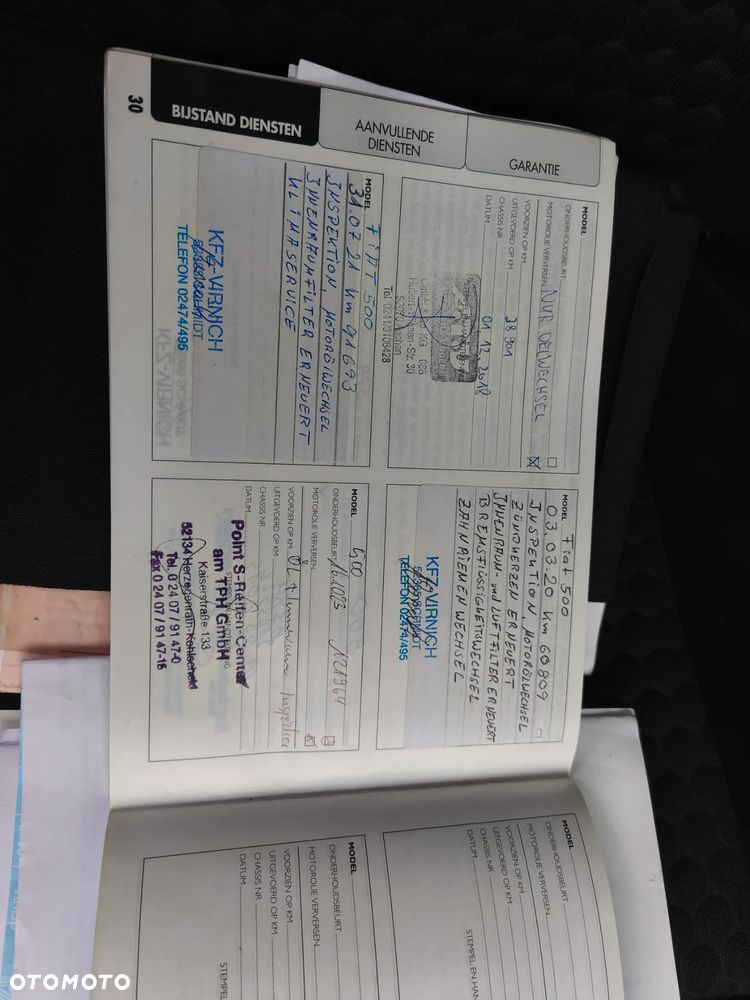 BIJSTAND DIENSTEN
AANVULLENDE
DIENSTEN
GARANTIE
MODEL
ONDERHOUDSBEURT
MOTOROLIE VERVERSEN
NUR OELWECHSEL
VOORZIEN OP KM
UITGEVOERD OP KM
28901
CHASSIS NR
DATUM
01 12. 2018
Tel. 0241/9108428
MODEL
Fiat 500
03.03.20 Km 60809
INSPEKTION, MOTORÖLWECHSEL
ZÜNDKERZEN ERNEUERT
INNENRAUM- und LUFTFILTER ERNEUERT
BREMSFLÜSSIGKEITSWECHSEL
ZAHNRIEMENWECHSEL
KFZ-VIRNICH
TELEFON 02474/495
MODEL
FIAT 500
31.07.21 Km 91693
INSPEKTION, MOTORÖLWECHSEL
INNENRAUMFILTER ERNEUERT
KLIMASERVICE
KFZ-VIRNICH
TELEFON 02474/495
KFZ-VIRNICH
MODEL
500
ONDERHOUDSBEURT
121964
MOTOROLIE VERVERSEN
VOORZIEN OP KM
ÖL +
Inspektion
UITGEVOERD OP KM
CHASSIS NR
DATUM
Point S-Reifen-Center
am TPH GmbH
Kaiserstraße 133
52134 Herzogenrath-Kohlscheid
Tel. 0 24 07 / 91 47-0
Fax 0 24 07 / 91 47-15
30
MODEL
ONDERHOUDSBEURT
MOTOROLIE VERVERSEN
VOORZIEN OP KM
UITGEVOERD OP KM
CHASSIS NR
DATUM
STEMPEL EN HAN
MODEL
ONDERHOUDSBEURT
MOTOROLIE VERVERSEN
VOORZIEN OP KM
UITGEVOERD OP KM
CHASSIS NR
DATUM
STEMPEL
OTOMOTO